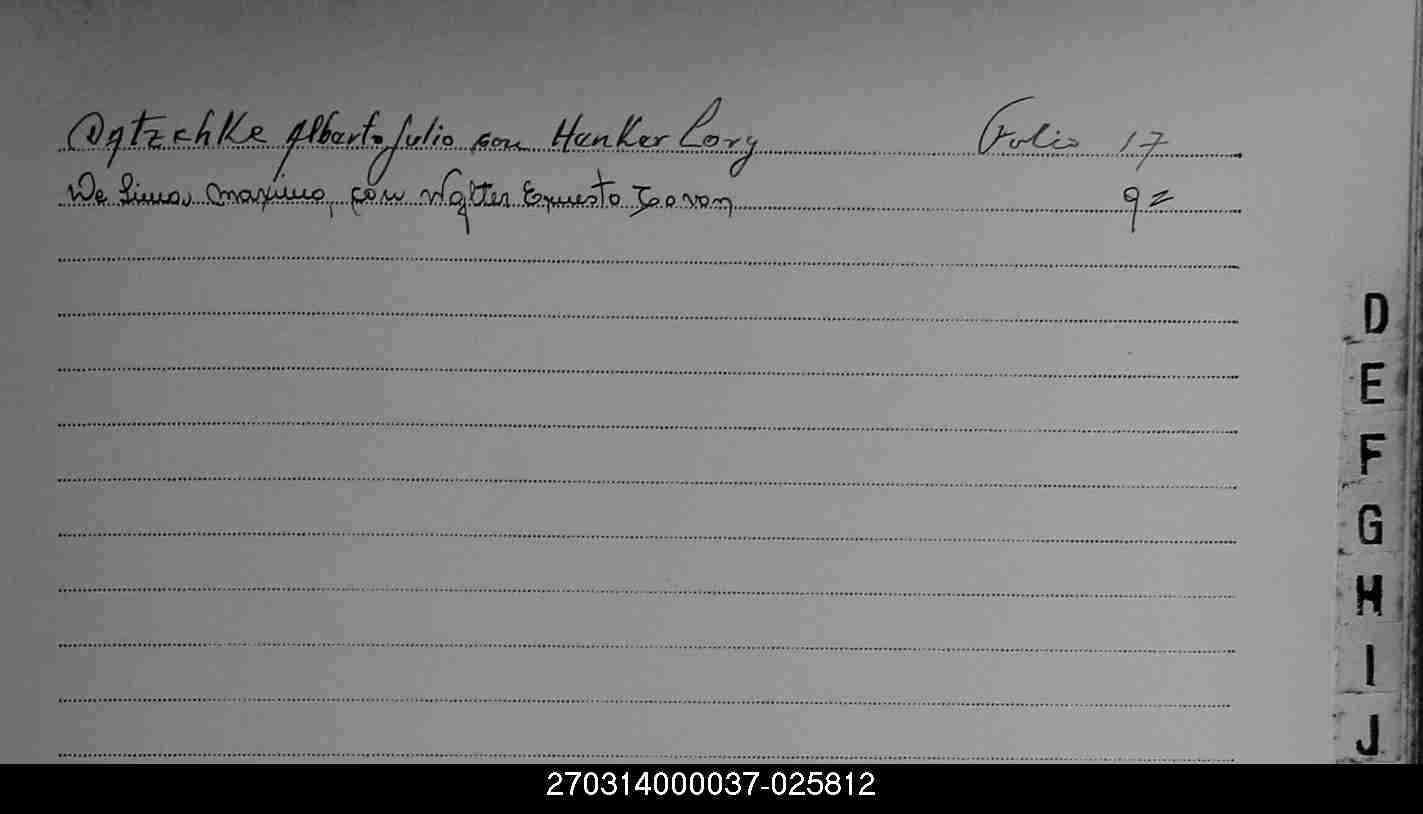 Dqtzchke Alberto Julio con Hanker Lory Folio 17
De Lima, Maximo, con Walter Ernesto 92
D
E
F
G
H
I
J
270314000037-025812